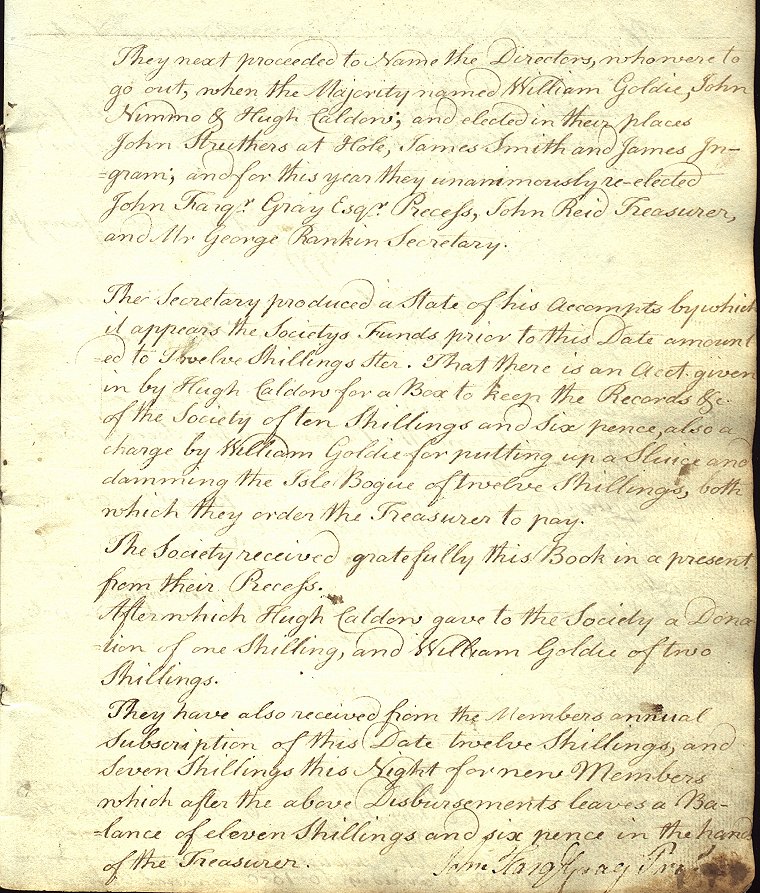 They next proceeded to Name the Directors, who were to
go out, when the Majority named William Goldie, John
Nimmo & Hugh Caldow; and elected in their places
John Struthers at Hole, James Smith and James In-
=gram; and for this year they unanimously re-elected
John Farqr. Gray Esqr. Precess, John Reid Treasurer,
and Mr George Rankin Secretary.
The Secretary produced a State of his Accompts by which
it appears the Societys Funds prior to this Date amount
=ed to Twelve Shillings Ster. That there is an Acct. given
in by Hugh Caldow for a Box to keep the Records &c
of the Society of ten Shillings and six pence, also a
charge by William Goldie for putting up a Sluice and
damming the Isle Bogue of twelve Shillings, both
which they order the Treasurer to pay.
The Society received gratefully this Book in a present
from their Precess.
After which Hugh Caldow gave to the Society a Dona
=tion of one Shilling, and William Goldie of two
Shillings.
They have also received from the Members annual
Subscription of this Date twelve Shillings, and
Seven Shillings this Night for new Members
which after the above Disbursements leaves a Ba-
=lance of eleven Shillings and six pence in the hand
of the Treasurer. John Farqr Gray